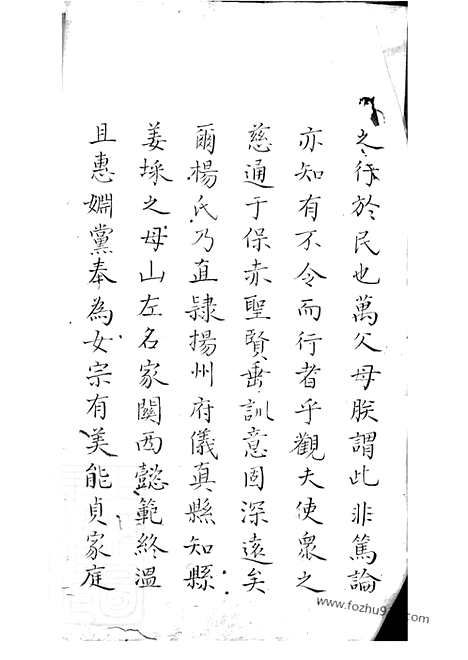 之行於民也萬父母朕謂此非篤論
亦知有不令而行者乎觀夫使眾之
慈通于保赤聖賢垂訓意固深遠矣
爾楊氏乃直隸揚州府儀真縣知縣
姜埰之母山左名家關西懿範終溫
且惠婣黨奉為女宗有美能貞家庭
www.fozhu9